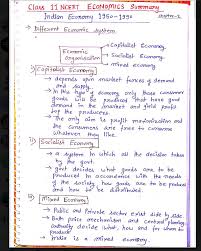 Class 11 NCERT ECONOMICS Summary
Indian Economy 1950-1990 chapter-2
Different Economic System
Economic Organisation
Capitalist Economy
Socialist Economy
Mixed economy
Capitalist Economy
→ depends upon market forces of demand and supply.
→ In this type of economy only those consumer goods will be produced that have good demand in the market and yield profit for the producers.
→ the only aim is profit maximisation and the consumers are free to consume whatever they like.
Socialist Economy
→ a system in which all the decision taken by the govt.
→ govt decides what goods are to be produced in accordance with the needs of the society, how goods are to be produced and how to be distributed.
Mixed Economy
→ Public and Private sector exist side by side
→ Both price mechanism and central planning authority decide what, how and for whom to produce.
India is a mixed economy.